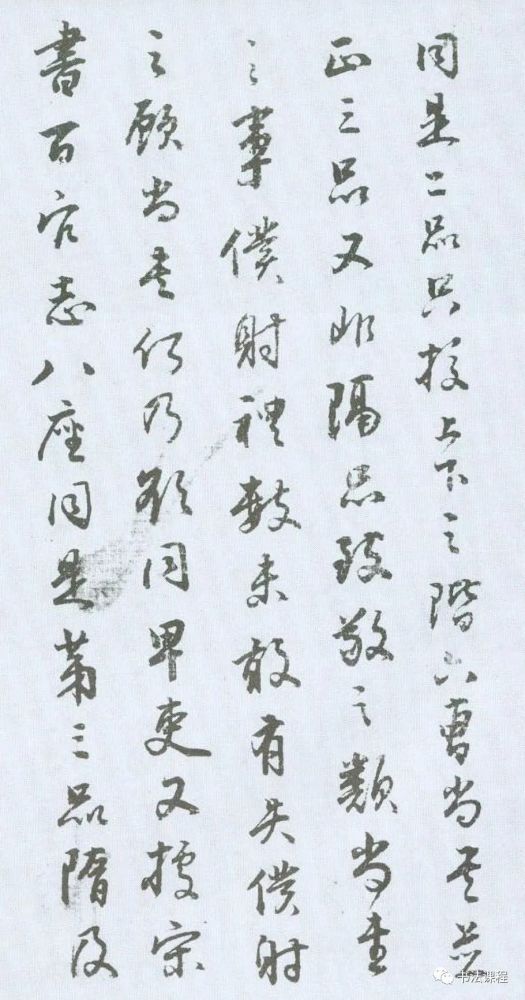 同是二品只校上下之階六曹尚書並
正三品又非隔品致敬之類尚書
之事僕射禮數未敢有失僕射
之顧尚書何乃欲同卑吏又據宋
書百官志八座同是第三品隋及
书法课程